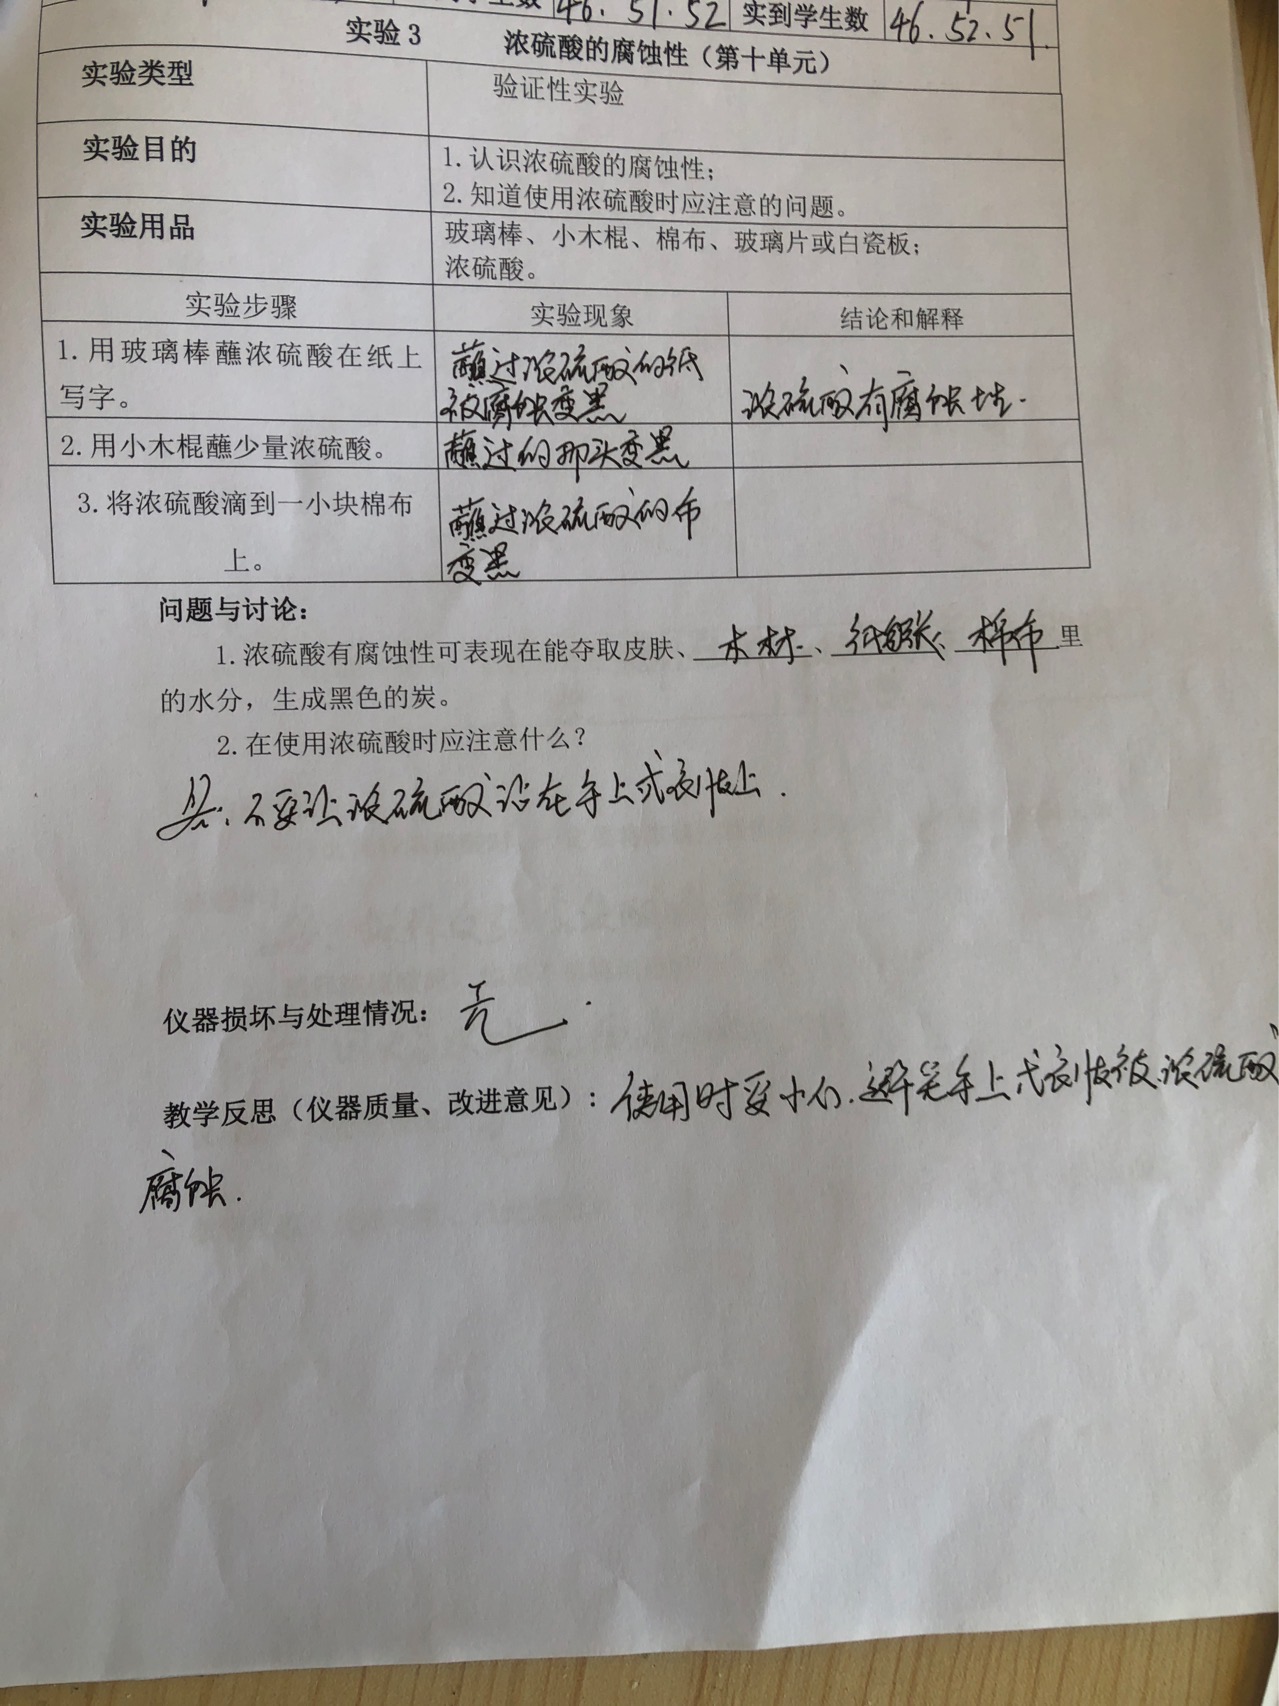 学生数 46.51.52 实到学生数 46.52.51.
实验3 浓硫酸的腐蚀性（第十单元）
实验类型 验证性实验
实验目的 1.认识浓硫酸的腐蚀性；
2.知道使用浓硫酸时应注意的问题。
实验用品 玻璃棒、小木棍、棉布、玻璃片或白瓷板；
浓硫酸。
实验步骤 实验现象 结论和解释
1.用玻璃棒蘸浓硫酸在纸上
写字。
蘸过浓硫酸的纸
被腐蚀变黑
浓硫酸有腐蚀性.
2.用小木棍蘸少量浓硫酸。
蘸过的那头变黑
3.将浓硫酸滴到一小块棉布
上。
蘸过浓硫酸的布
变黑
问题与讨论：
1.浓硫酸有腐蚀性可表现在能夺取皮肤、木材、纸张、棉布里
的水分，生成黑色的炭。
2.在使用浓硫酸时应注意什么？
不要让浓硫酸沾在手上或衣服上.
仪器损坏与处理情况：无.
教学反思（仪器质量、改进意见）：使用时要小心.避免手上或衣服被浓硫酸
腐蚀.